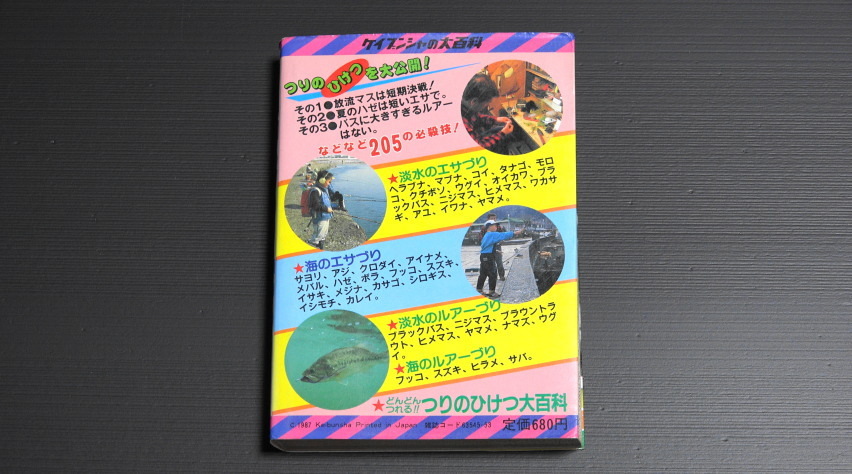 ケイブンシャの大百科
つりのひけつを大公開!
その1●放流マスは短期決戦!
その2●夏のハゼは短いエサで。
その3●バスに大きすぎるルアー
はない。
などなど205の必殺技!
★淡水のエサづり
ヘラブナ、マブナ、コイ、タナゴ、モロ
コ、クチボソ、ウグイ、オイカワ、ブラ
ックバス、ニジマス、ヒメマス、ワカサ
ギ、アユ、イワナ、ヤマメ。
★海のエサづり
サヨリ、アジ、クロダイ、アイナメ、
メバル、ハゼ、ボラ、フッコ、スズキ、
イサキ、メジナ、カサゴ、シロギス、
イシモチ、カレイ。
★淡水のルアーづり
ブラックバス、ニジマス、ブラウントラ
ウト、ヒメマス、ヤマメ、ナマズ、ウグ
イ。
★海のルアーづり
フッコ、スズキ、ヒラメ、サバ。
★どんどん
つれる!!つりのひけつ大百科
©1987 Keibunsha Printed in Japan 雑誌コード63545-53 定価680円